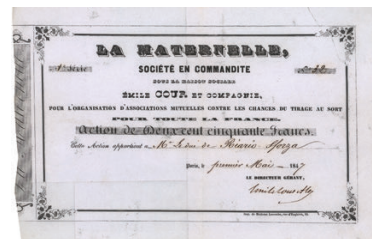 LA MATERNELLE,
1re Série
SOCIÉTÉ EN COMMANDITE
SOUS LA RAISON SOCIALE
ÉMILE COUR ET COMPAGNIE,
POUR L'ORGANISATION D'ASSOCIATIONS MUTUELLES CONTRE LES CHANCES DU TIRAGE AU SORT
POUR TOUTE LA FRANCE.
Action de Deux cent cinquante Francs.
Cette Action appartient à Mr le duc de Riario Sforza
Paris, le premier Mai 1847
LE DIRECTEUR GÉRANT,